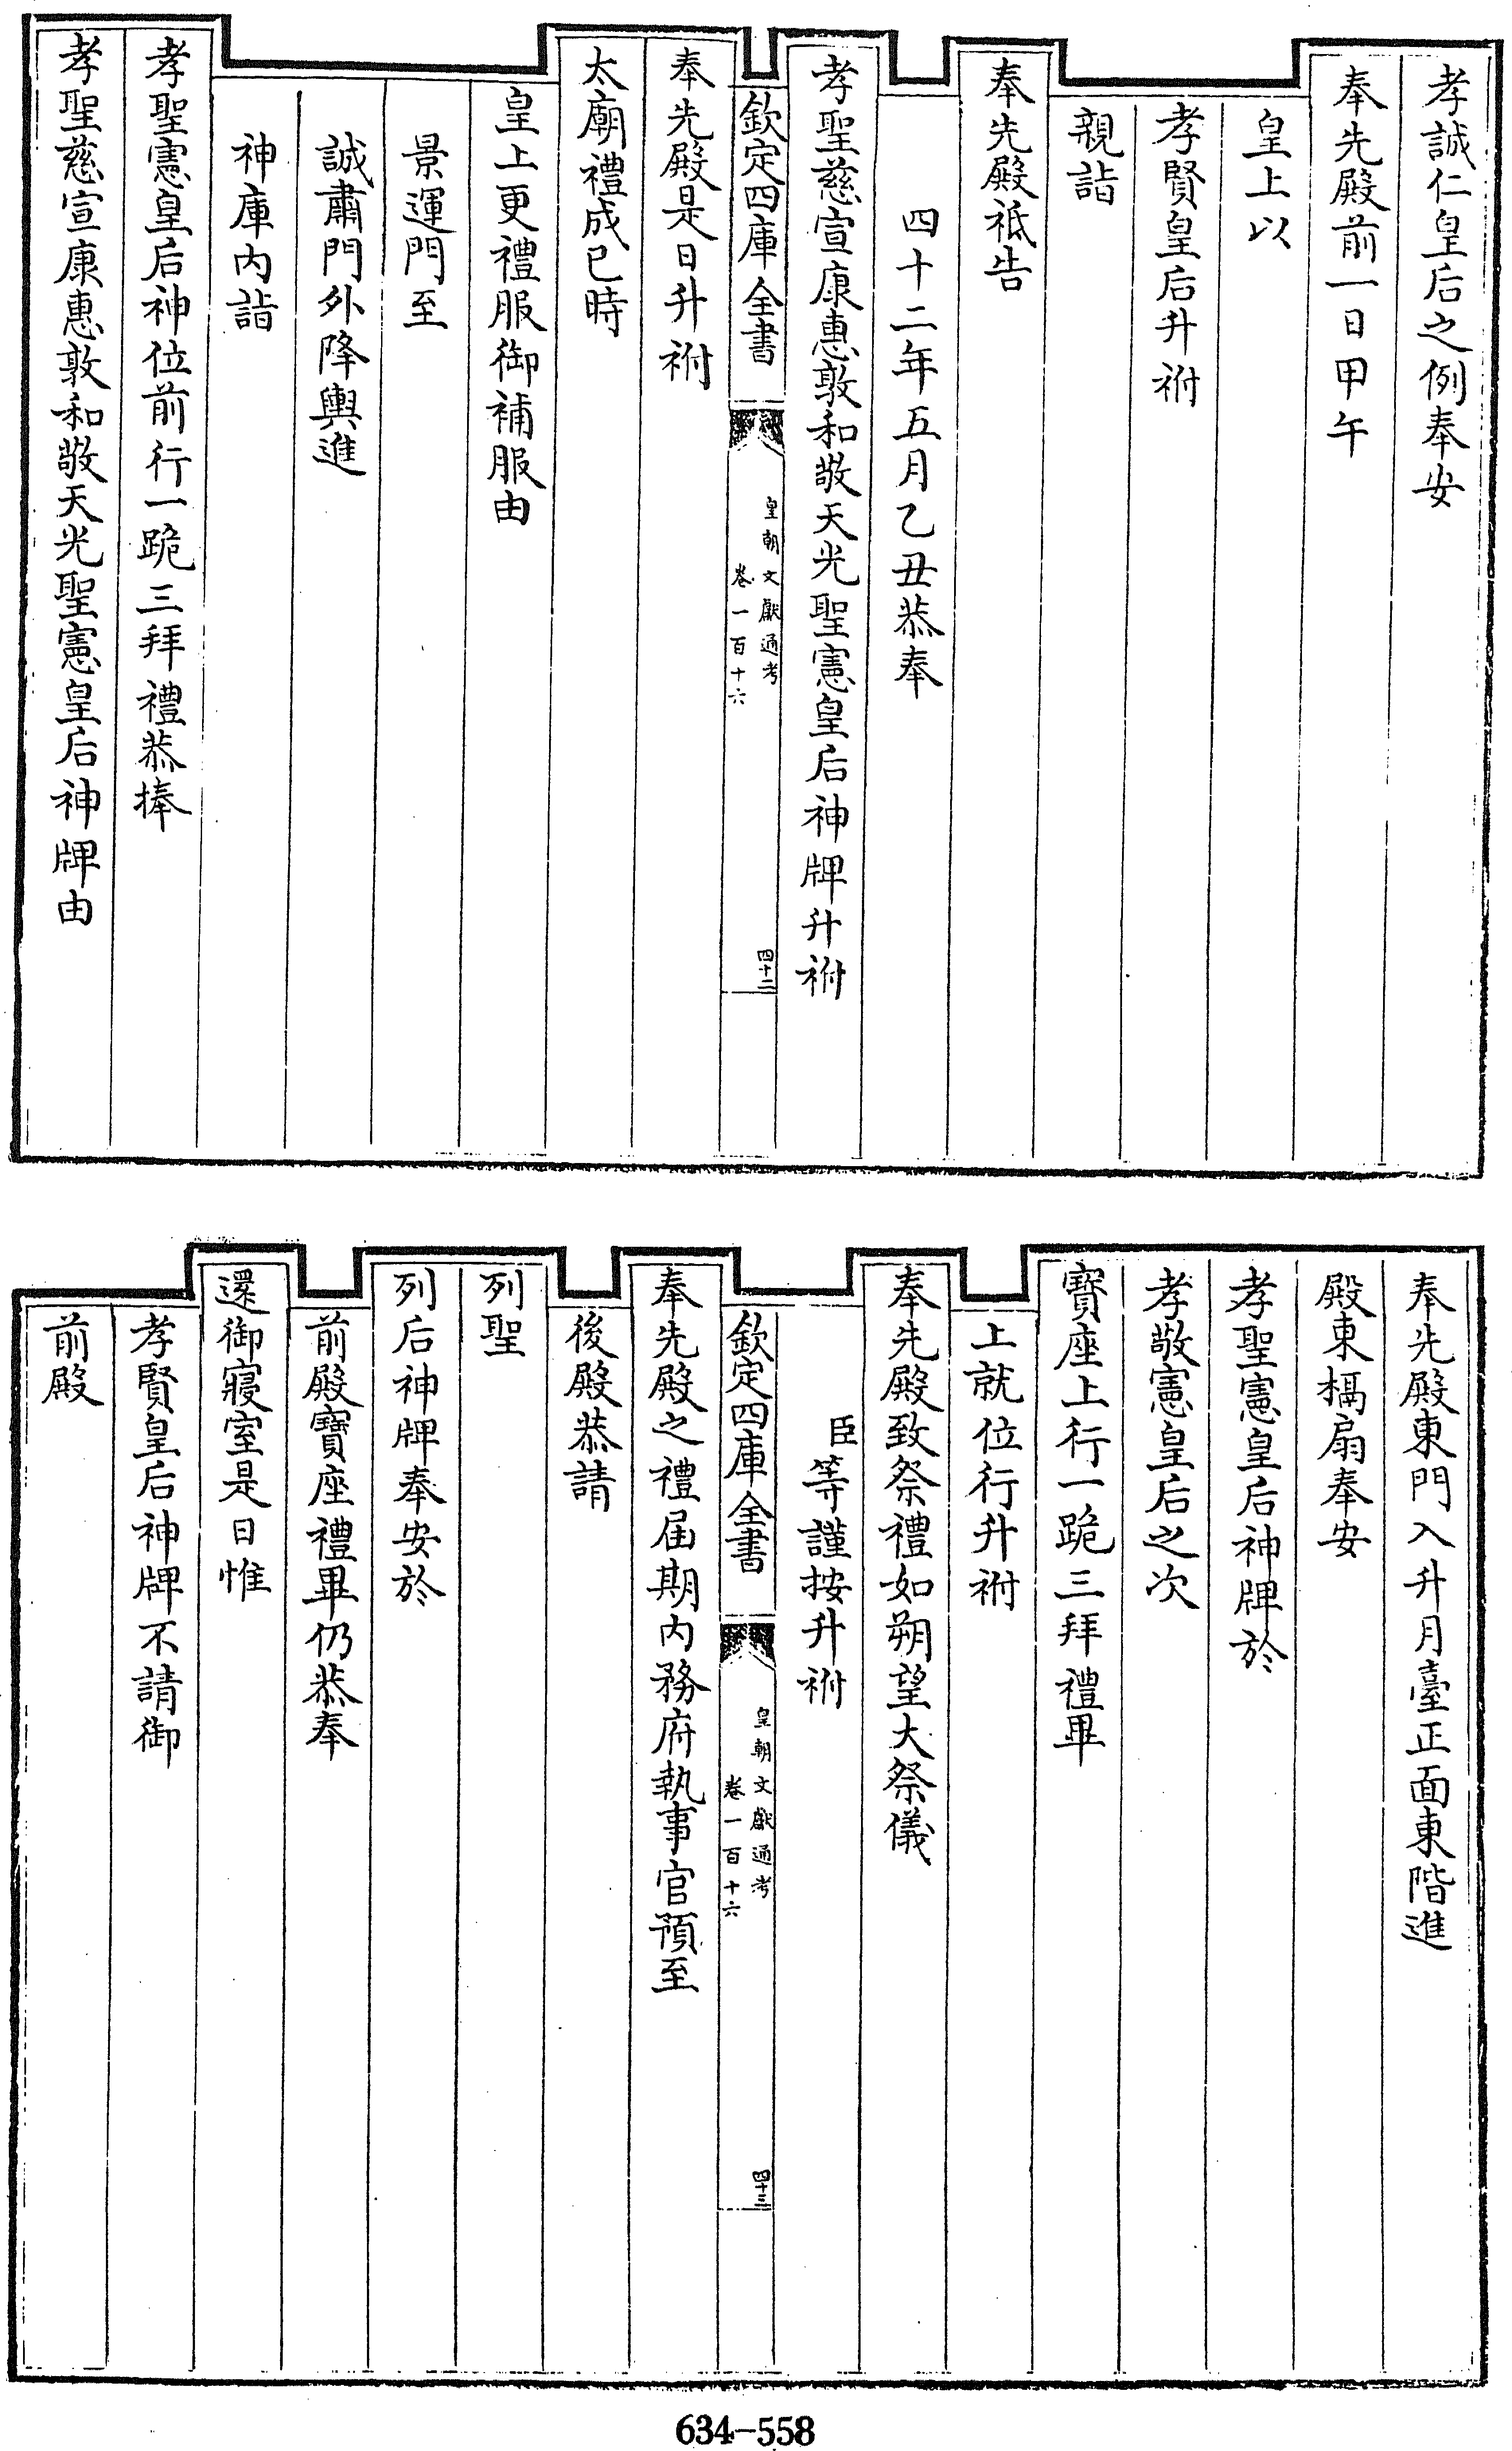 孝誠仁皇后之例奉安
奉先殿前一日甲午
皇上以
孝賢皇后升祔
親詣
奉先殿祗告
四十二年五月乙丑恭奉
孝聖慈宣康惠敦和敬天光聖憲皇后神牌升祔
欽定四庫全書
皇朝文獻通考
卷一百十六
四十二
奉先殿是日升祔
太廟禮成巳時
皇上更禮服御補服由
景運門至
誠肅門外降輿進
神庫內詣
孝聖憲皇后神位前行一跪三拜禮恭捧
孝聖慈宣康惠敦和敬天光聖憲皇后神牌由
奉先殿東門入升月臺正面東階進
殿東槅扇奉安
孝聖憲皇后神牌於
孝敬憲皇后之次
寶座上行一跪三拜禮畢
上就位行升祔
奉先殿致祭禮如朔望大祭儀
臣等謹按升祔
欽定四庫全書
皇朝文獻通考
卷一百十六
四十三
奉先殿之禮屆期內務府執事官預至
後殿恭請
列聖
列后神牌奉安於
前殿寶座禮畢仍恭奉
還御寢室是日惟
孝賢皇后神牌不請御
前殿
634-558